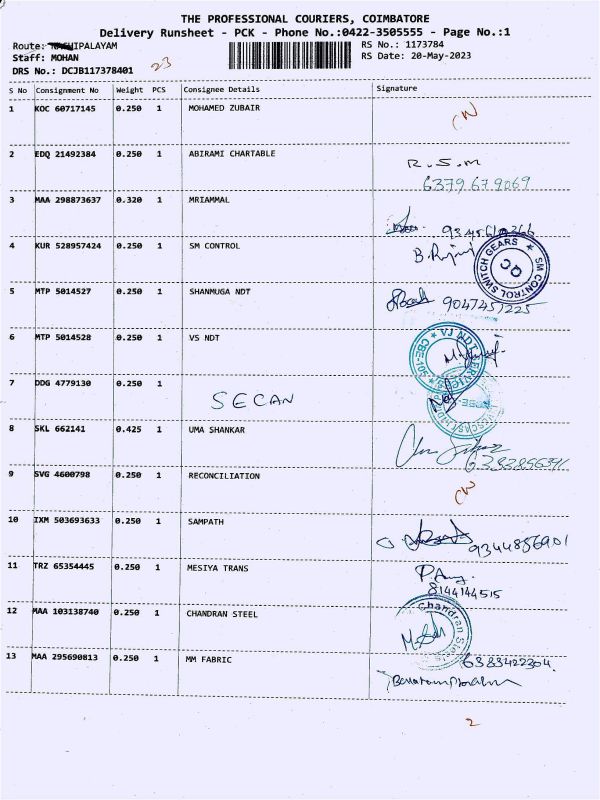 THE PROFESSIONAL COURIERS, COIMBATORE
Delivery Runsheet - PCK - Phone No.:0422-3505555 - Page No.:1
Route: HIPALAYAM
RS No.: 1173784
Staff: MOHAN
RS Date: 20-May-2023
DRS No.: DCJB117378401
23
S No Consignment No Weight PCS Consignee Details Signature
1 KOC 60717145 0.250 1 MOHAMED ZUBAIR
2 EDQ 21492384 0.250 1 ABIRAMI CHARTABLE R.S.M
6379679069
3 MAA 298873637 0.320 1 MRIAMMAL
4 KUR 528957424 0.250 1 SM CONTROL
SM CONTROL SWITCH GEARS
5 MTP 5014527 0.250 1 SHANMUGA NDT 9047451225
6 MTP 5014528 0.250 1 VS NDT
7 DDG 4779130 0.250 1 SECAN
8 SKL 662141 0.425 1 UMA SHANKAR
9 SVG 4600798 0.250 1 RECONCILIATION
10 IXM 503693633 0.250 1 SAMPATH
9344856901
11 TRZ 65354445 0.250 1 MESIYA TRANS
8144144515
12 MAA 103138740 0.250 1 CHANDRAN STEEL
Chandran Steels
13 MAA 295690813 0.250 1 MM FABRIC 6383422304.
2